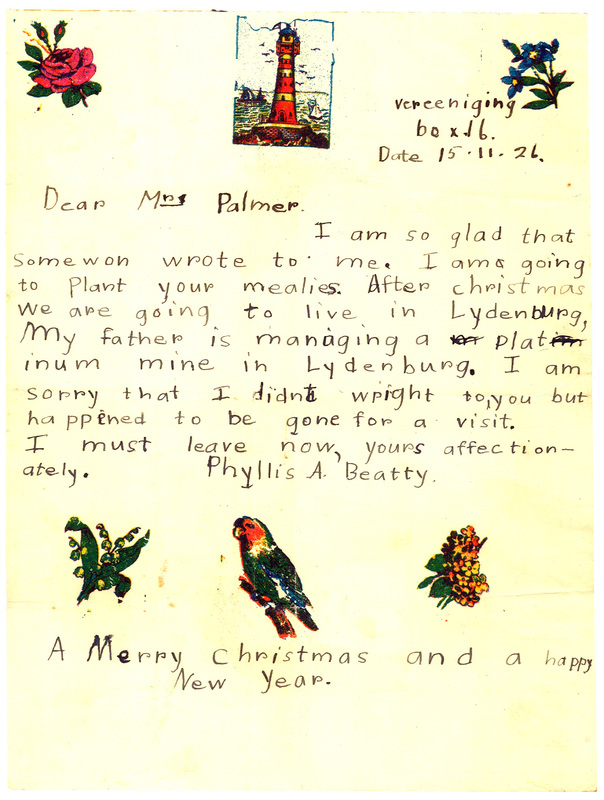 vereeniging
box 16.
Date 15.11.26.
Dear Mrs Palmer.
I am so glad that
somewon wrote to me. I am going
to Plant your mealies. After christmas
we are going to live in Lydenburg,
My father is managing a plat
inum mine in Lydenburg. I am
sorry that I didnt wright to, you but
happined to be gone for a visit.
I must leave now, yours affection-
ately. Phyllis A. Beatty.
A Merry Christmas and a happy
New Year.